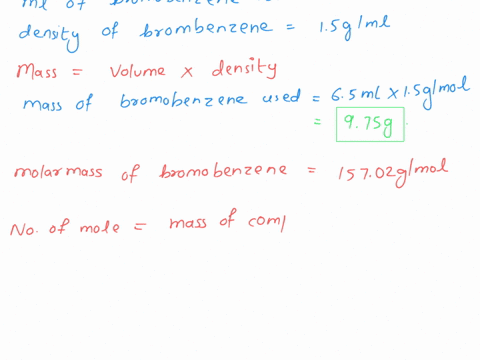 ml of bromobenzene
density of brombenzene = 1.5g/ml
Mass = Volume x density
mass of bromobenzene used = 6.5 ml x 1.5g/mol
= 9.75g.
molar mass of bromobenzene = 157.02g/mol
No. of mole = mass of comp